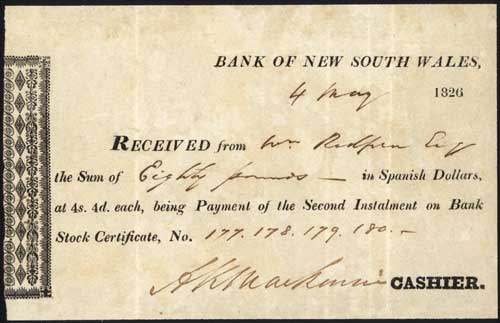 BANK OF NEW SOUTH WALES,
4 May 1826
RECEIVED from Wm Redfern Esq
the Sum of Eighty pounds — in Spanish Dollars,
at 4s. 4d. each, being Payment of the Second Instalment on Bank
Stock Certificate, No. 177. 178. 179. 180. —
A K Mackenzie CASHIER.